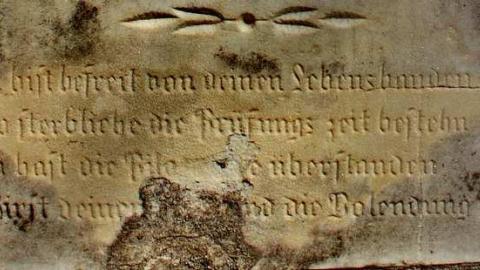 bist befreit von deinen Lebensbanden
sterbliche die Prüfungs zeit bestehn
hast die überstanden
die Volendung